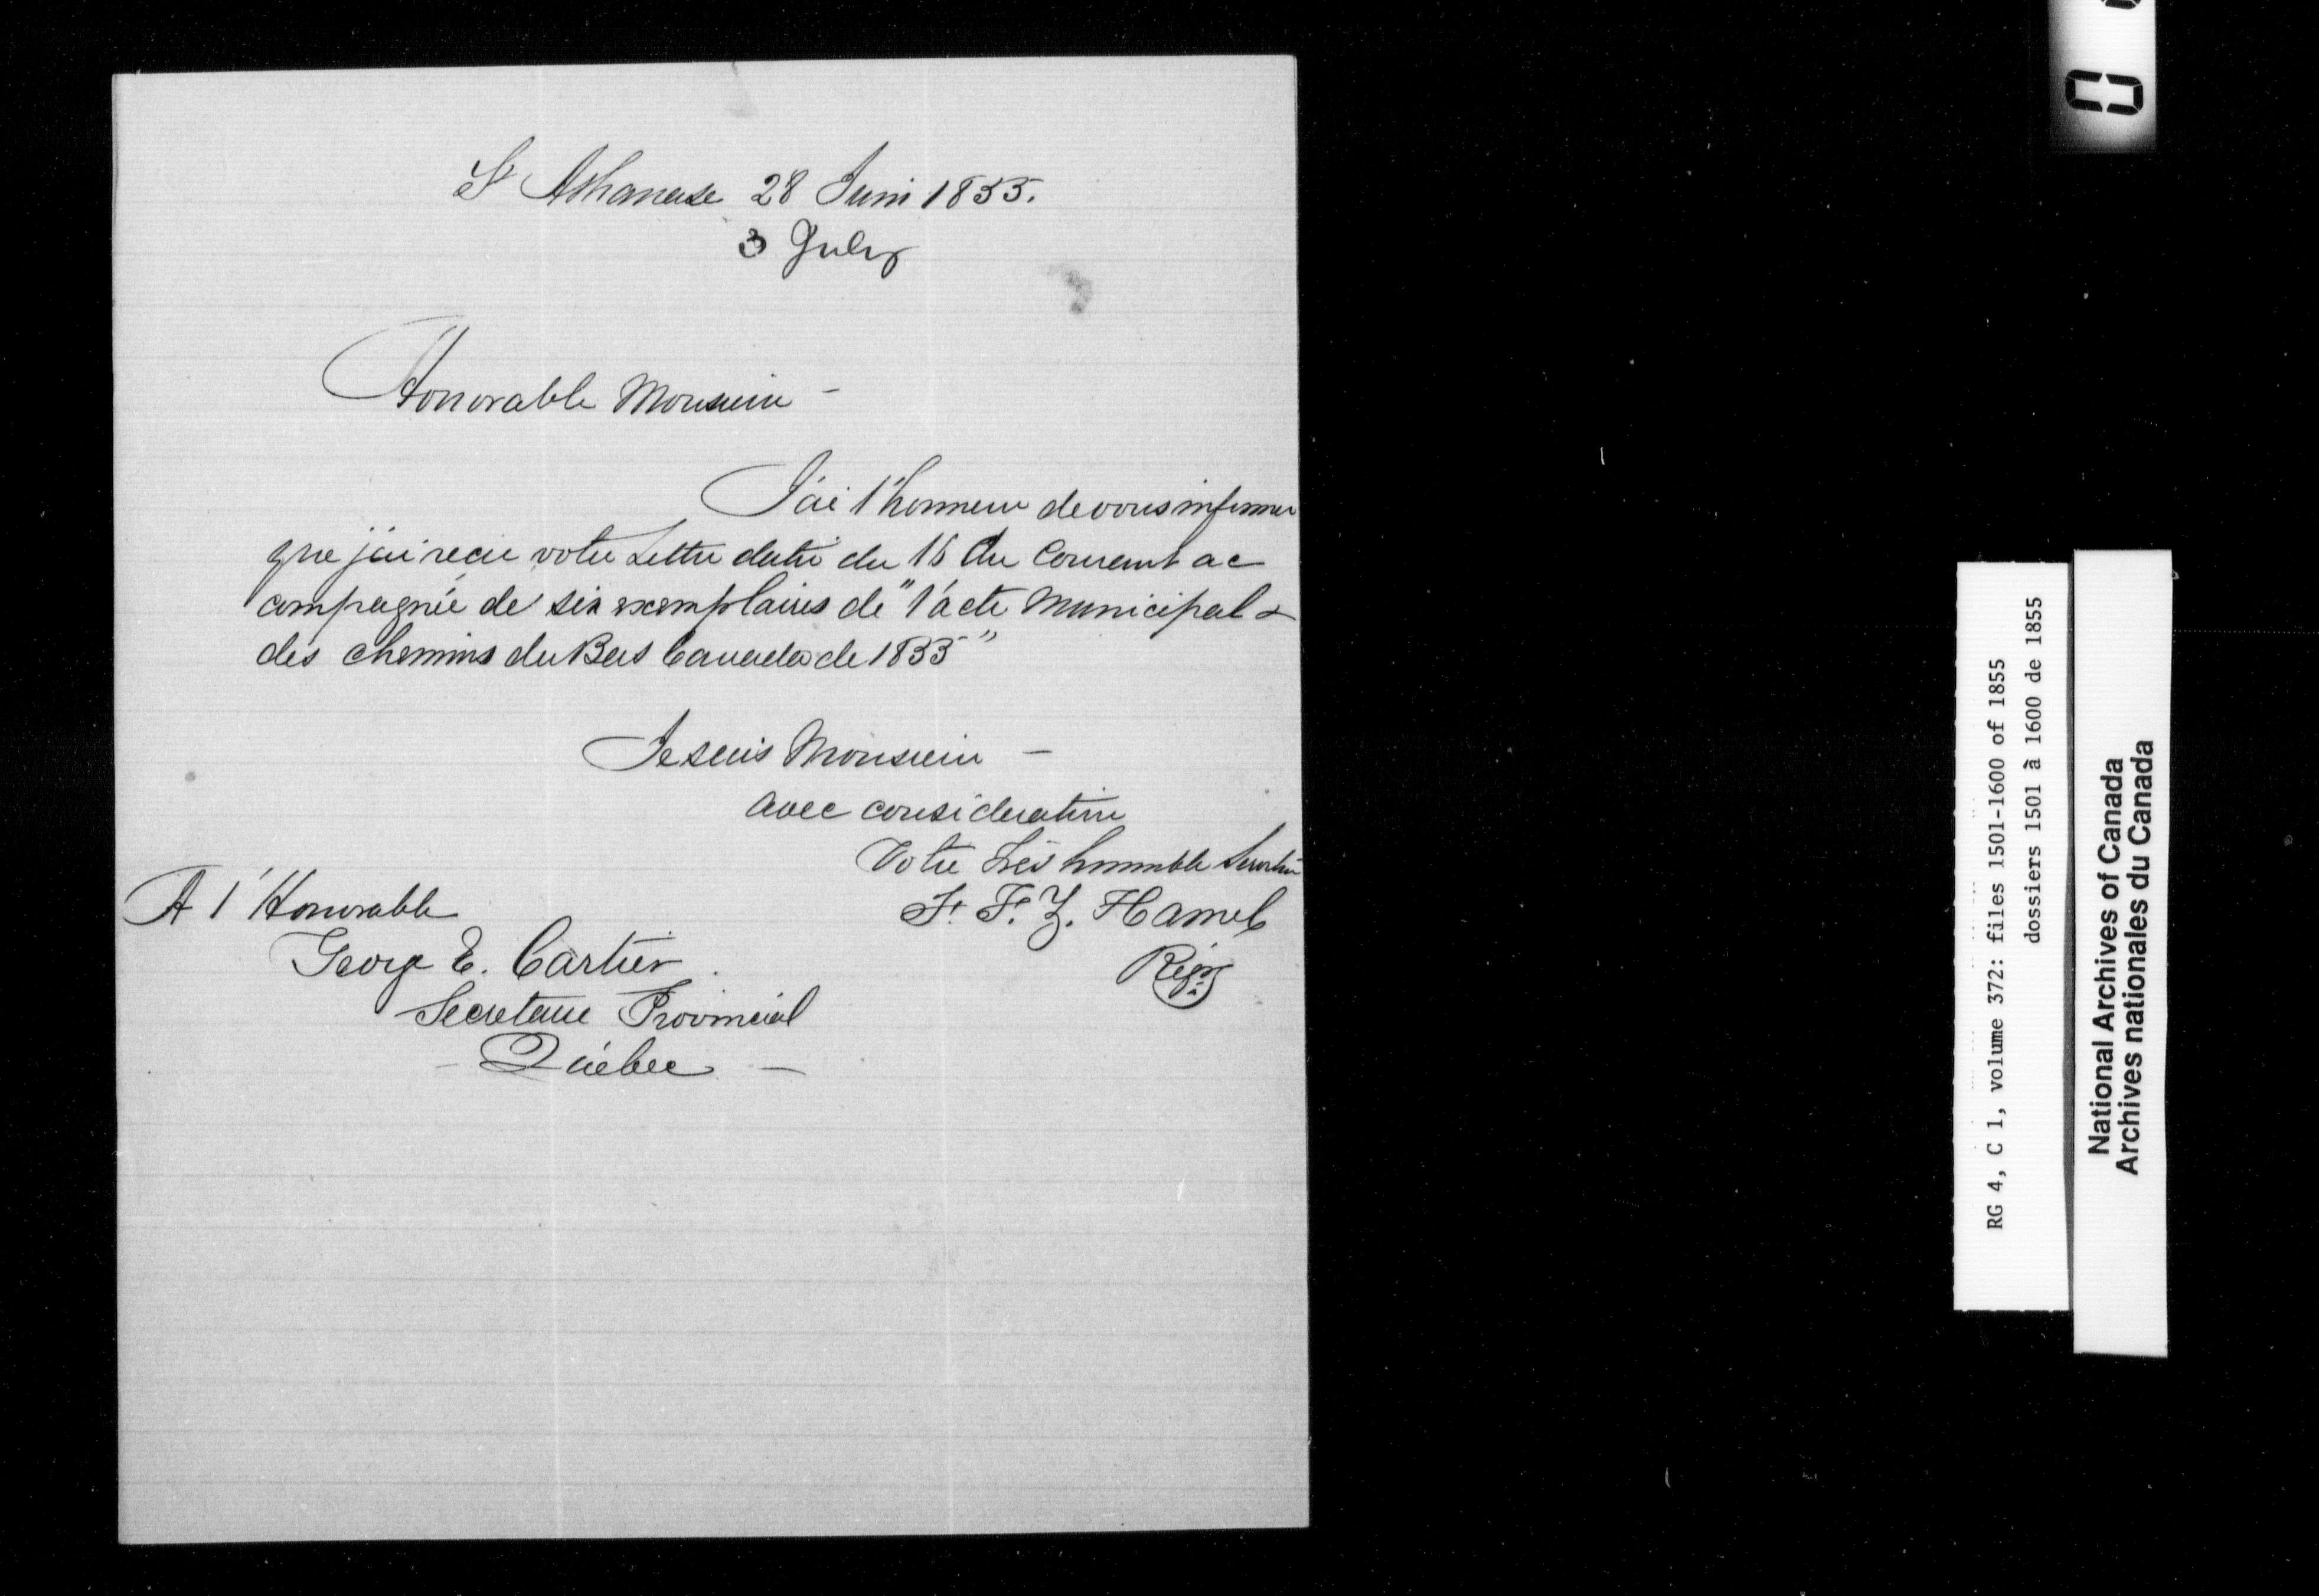 St Athanase 28 Juin 1855.
3 July
Honorable Monsieur -
J'ai l'honneur de vous informer
que j'ai recu votre Lettre datée du 16 du Courant ac
compagnée de six exemplaires de "l'acte Municipal &
des chemins du Bas Canada de 1855"
Je suis Monsieur -
avec consideration
Votre très humble Serviteur
F. F. Z. Hamel
Régr
A l'Honorable
George E. Cartier
Secretaire Provincial
- Québec -
RG 4, C 1, volume 372: files 1501-1600 of 1855
dossiers 1501 à 1600 de 1855
National Archives of Canada
Archives nationales du Canada